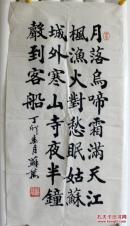 月落烏啼霜滿天江
楓漁火對愁眠姑蘇
城外寒山寺夜半鐘
聲到客船
丁卯
月